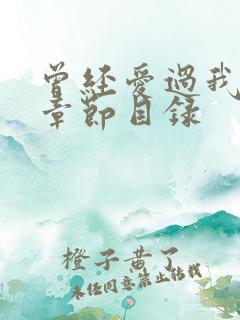 曾经爱过我
章节目录
橙子黄了
未经同意禁止转载